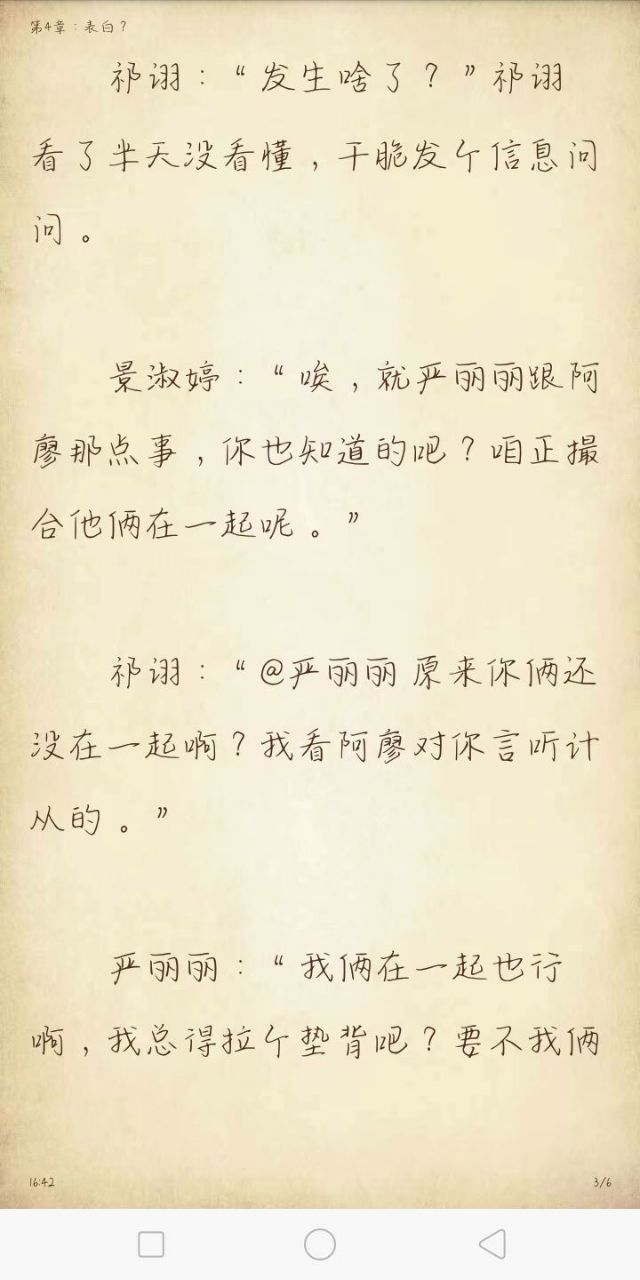 第4章：表白？
祁诩：“发生啥了？”祁诩
看了半天没看懂，干脆发个信息问
问。
景淑婷：“唉，就严丽丽跟阿
廖那点事，你也知道的吧？咱正撮
合他俩在一起呢。”
祁诩：“@严丽丽 原来你俩还
没在一起啊？我看阿廖对你言听计
从的。”
严丽丽：“我俩在一起也行
啊，我总得拉个垫背吧？要不我俩
16:42
3/6